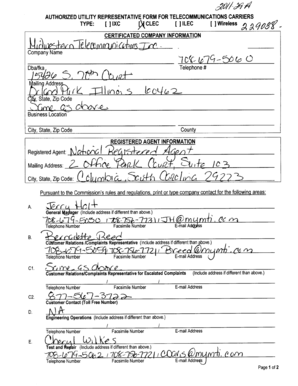 2011-36-A
AUTHORIZED UTILITY REPRESENTATIVE FORM FOR TELECOMMUNICATIONS CARRIERS
TYPE: [ ] IXC [X] CLEC [ ] ILEC [ ] Wireless 229088
CERTIFIED COMPANY INFORMATION
Midwestern Telecommunications Inc.
Company Name
708-679-5060
Dba/fka Telephone #
15426 S. 70th Court
Mailing Address
Orland Park Illinois 60462
City, State, Zip Code
Same as above
Business Location
City, State, Zip Code County
REGISTERED AGENT INFORMATION
Registered Agent: National Registered Agent
Mailing Address: 2 Office Park Court, Suite 103
City, State, Zip Code: Columbia, South Carolina 29223
Pursuant to the Commission's rules and regulations, print or type company contact for the following areas:
A. Jerry Holt
General Manager (Include address if different than above.)
708-679-5050 / 708-756-7731 / JH@mymti.com
Telephone Number Facsimile Number E-mail Address
B. Bernadette Reed
Customer Relations/Complaints Representative (Include address if different than above.)
Telephone Number Facsimile Number E-mail Address
C1. Same as above
Customer Relations/Complaints Representative for Escalated Complaints (Include address if different than above.)
Telephone Number Facsimile Number E-mail Address
C2. 877-567-3722
Customer Contact (Toll Free Number)
D. NA
Engineering Operations (Include address if different than above.)
Telephone Number Facsimile Number E-mail Address
E. Cheryl Wilkes
Test and Repair (Include address if different than above.)
Telephone Number Facsimile Number E-mail Address
Page 1 of 2